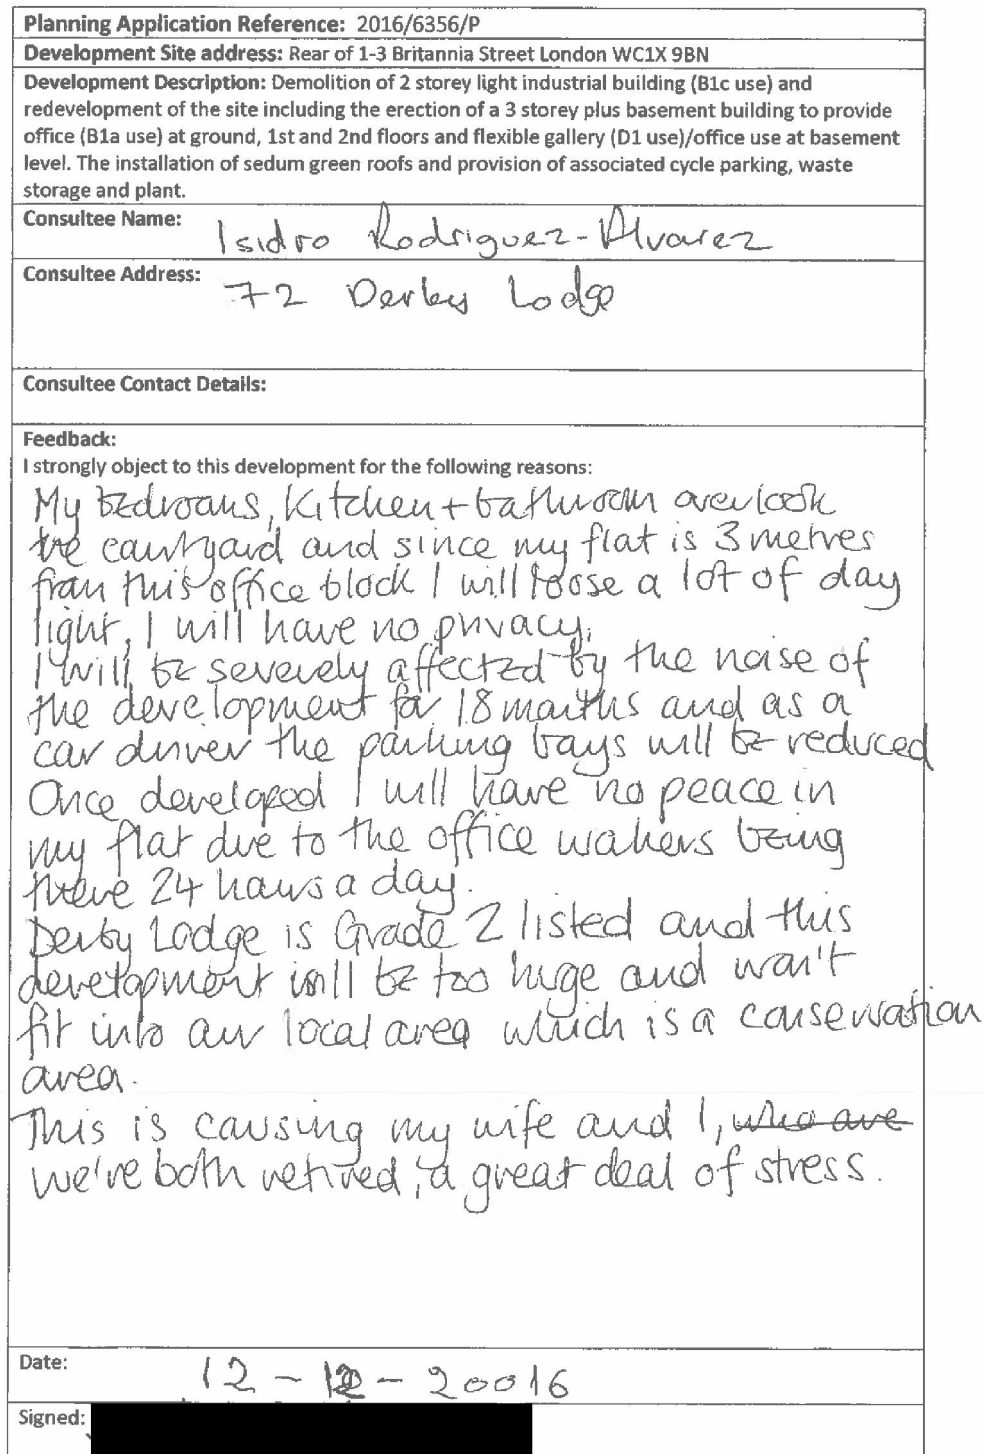 Planning Application Reference: 2016/6356/P
Development Site address: Rear of 1-3 Britannia Street London WC1X 9BN
Development Description: Demolition of 2 storey light industrial building (B1c use) and
redevelopment of the site including the erection of a 3 storey plus basement building to provide
office (B1a use) at ground, 1st and 2nd floors and flexible gallery (D1 use)/office use at basement
level. The installation of sedum green roofs and provision of associated cycle parking, waste
storage and plant.
Consultee Name: Isidro Rodriguez-Alvarez
Consultee Address: 72 Derby Lodge
Consultee Contact Details:
Feedback:
I strongly object to this development for the following reasons:
My bedrooms, Kitchen + bathroom overlook
the courtyard and since my flat is 3 metres
from this office block I will loose a lot of day
light, I will have no privacy.
I will be severely affected by the noise of
the development for 18 months and as a
car driver the parking bays will be reduced
Once developed I will have no peace in
my flat due to the office workers being
there 24 hours a day.
Derby Lodge is Grade 2 listed and this
development will be too huge and won't
fit into our local area which is a conservation
area.
This is causing my wife and I, who are
we're both retired, a great deal of stress.
Date: 12-12-20016
Signed: